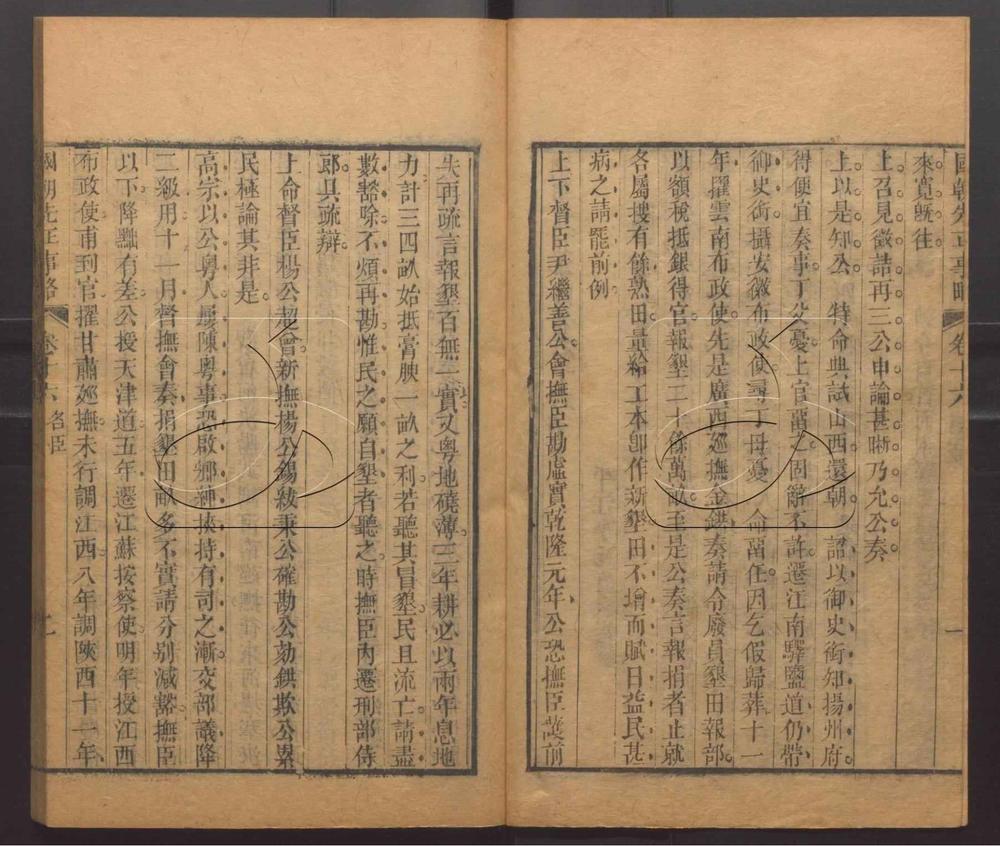 國朝先正事略 卷十六 一
來寬既往
上召見徵詰再三公申論甚晰乃允公奏
上以是知公 特命典試山西還朝 詔以御史銜知揚州府
得便宜奏事丁父憂上官留之固辭不許遷江南驛鹽道仍帶
御史銜攝安徽布政使尋丁母憂 命留任因乞假歸葬十一
年擢雲南布政使先是廣西廵撫金鉷奏請令廢員墾田報部
以額稅抵銀得官報墾二十餘萬畝至是公奏言報捐者止就
各屬搜有餘熟田量給工本卽作新墾田不增而賦日益民甚
病之請罷前例
上下督臣尹繼善公會撫臣勘虛實乾隆元年公恐撫臣護前
失再疏言報墾百無一實又粵地磽薄三年耕必以兩年息地
力計三四畝始抵膏腴一畝之利若聽其冒墾民且流亡請盡
數豁除不煩再勘惟民之願自墾者聽之時撫臣內遷刑部侍
郎具疏辯
上命督臣楊公超曾新撫楊公錫紱秉公確勘公劾鉷欺公累
民極論其非是
高宗以公粵人屢陳粵事恐啟鄉紳挾持有司之漸交部議降
二級用十一月督撫會奏捐墾田畝多不實請分別減豁撫臣
以下降黜有差公授天津道五年遷江蘇按察使明年授江西
布政使甫到官擢甘肅廵撫未行調江西八年調陝西十一年
國朝先正事略 卷十六 名臣